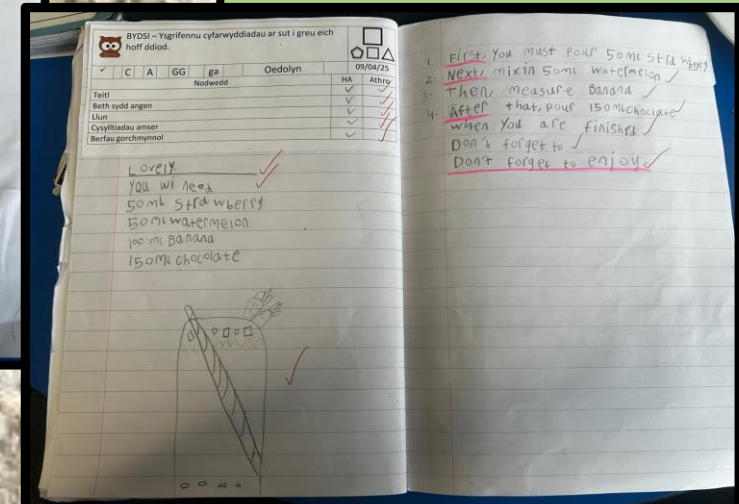 BYDSI – Ysgrifennu cyfarwyddiadau ar sut i greu eich
hoff ddiod.
09/04/25
✓ C A GG ga Oedolyn
Nodwedd HA Athro
Teitl
Beth sydd angen
Llun
Cysylltiadau amser
Berfau gorchmynnol
Lovely
You wi need
50ml Strawberry
50ml watermelon
100ml Banana
150ml chocolate
1. First, You must Pour 50ml Strawberry
2. Next, mix in 50ml watermelon
3. Then, measure Banana
4. After that, pour 150ml choclate
when you are finished
Don't forget to
Don't forget to enjoy